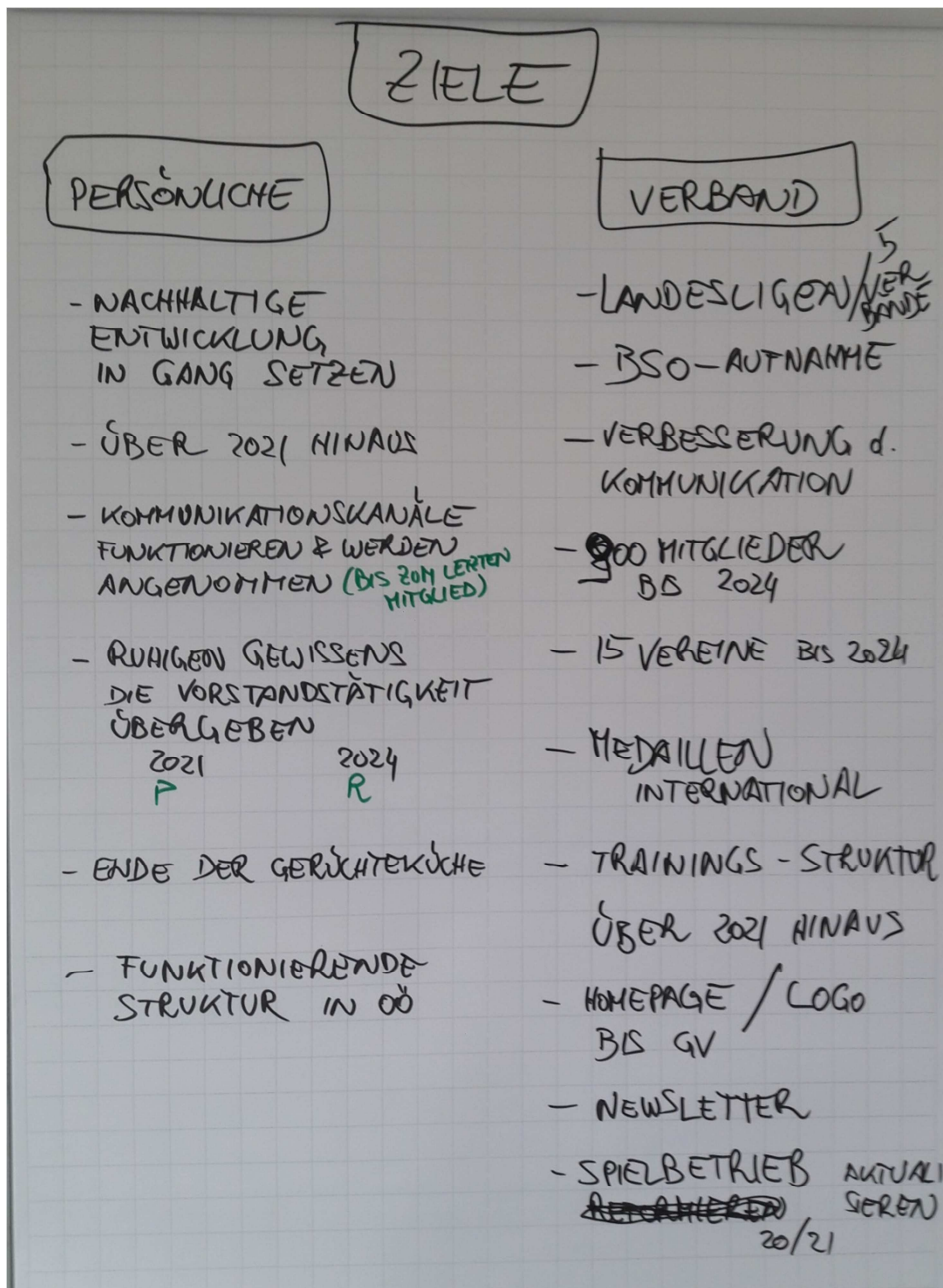 ZIELE
PERSÖNLICHE
- NACHHALTIGE
ENTWICKLUNG
IN GANG SETZEN
- ÜBER 2021 HINAUS
- KOMMUNIKATIONSKANÄLE
FUNKTIONIEREN & WERDEN
ANGENOMMEN (BIS ZUM LETZTEN
MITGLIED)
- RUHIGEN GEWISSENS
DIE VORSTANDSTÄTIGKEIT
ÜBERGEBEN
2021 2024
P R
- ENDE DER GERÜCHTEKÜCHE
- FUNKTIONIERENDE
STRUKTUR IN OÖ
VERBAND
5
- LANDESLIGEN/VER
BÄNDE
- BSO-AUFNAHME
- VERBESSERUNG d.
KOMMUNIKATION
- 900 MITGLIEDER
BIS 2024
- 15 VEREINE BIS 2024
- MEDAILLEN
INTERNATIONAL
- TRAININGS-STRUKTUR
ÜBER 2021 HINAUS
- HOMEPAGE / LOGO
BIS GV
- NEWSLETTER
- SPIELBETRIEB AKTUALI
SIEREN
20/21